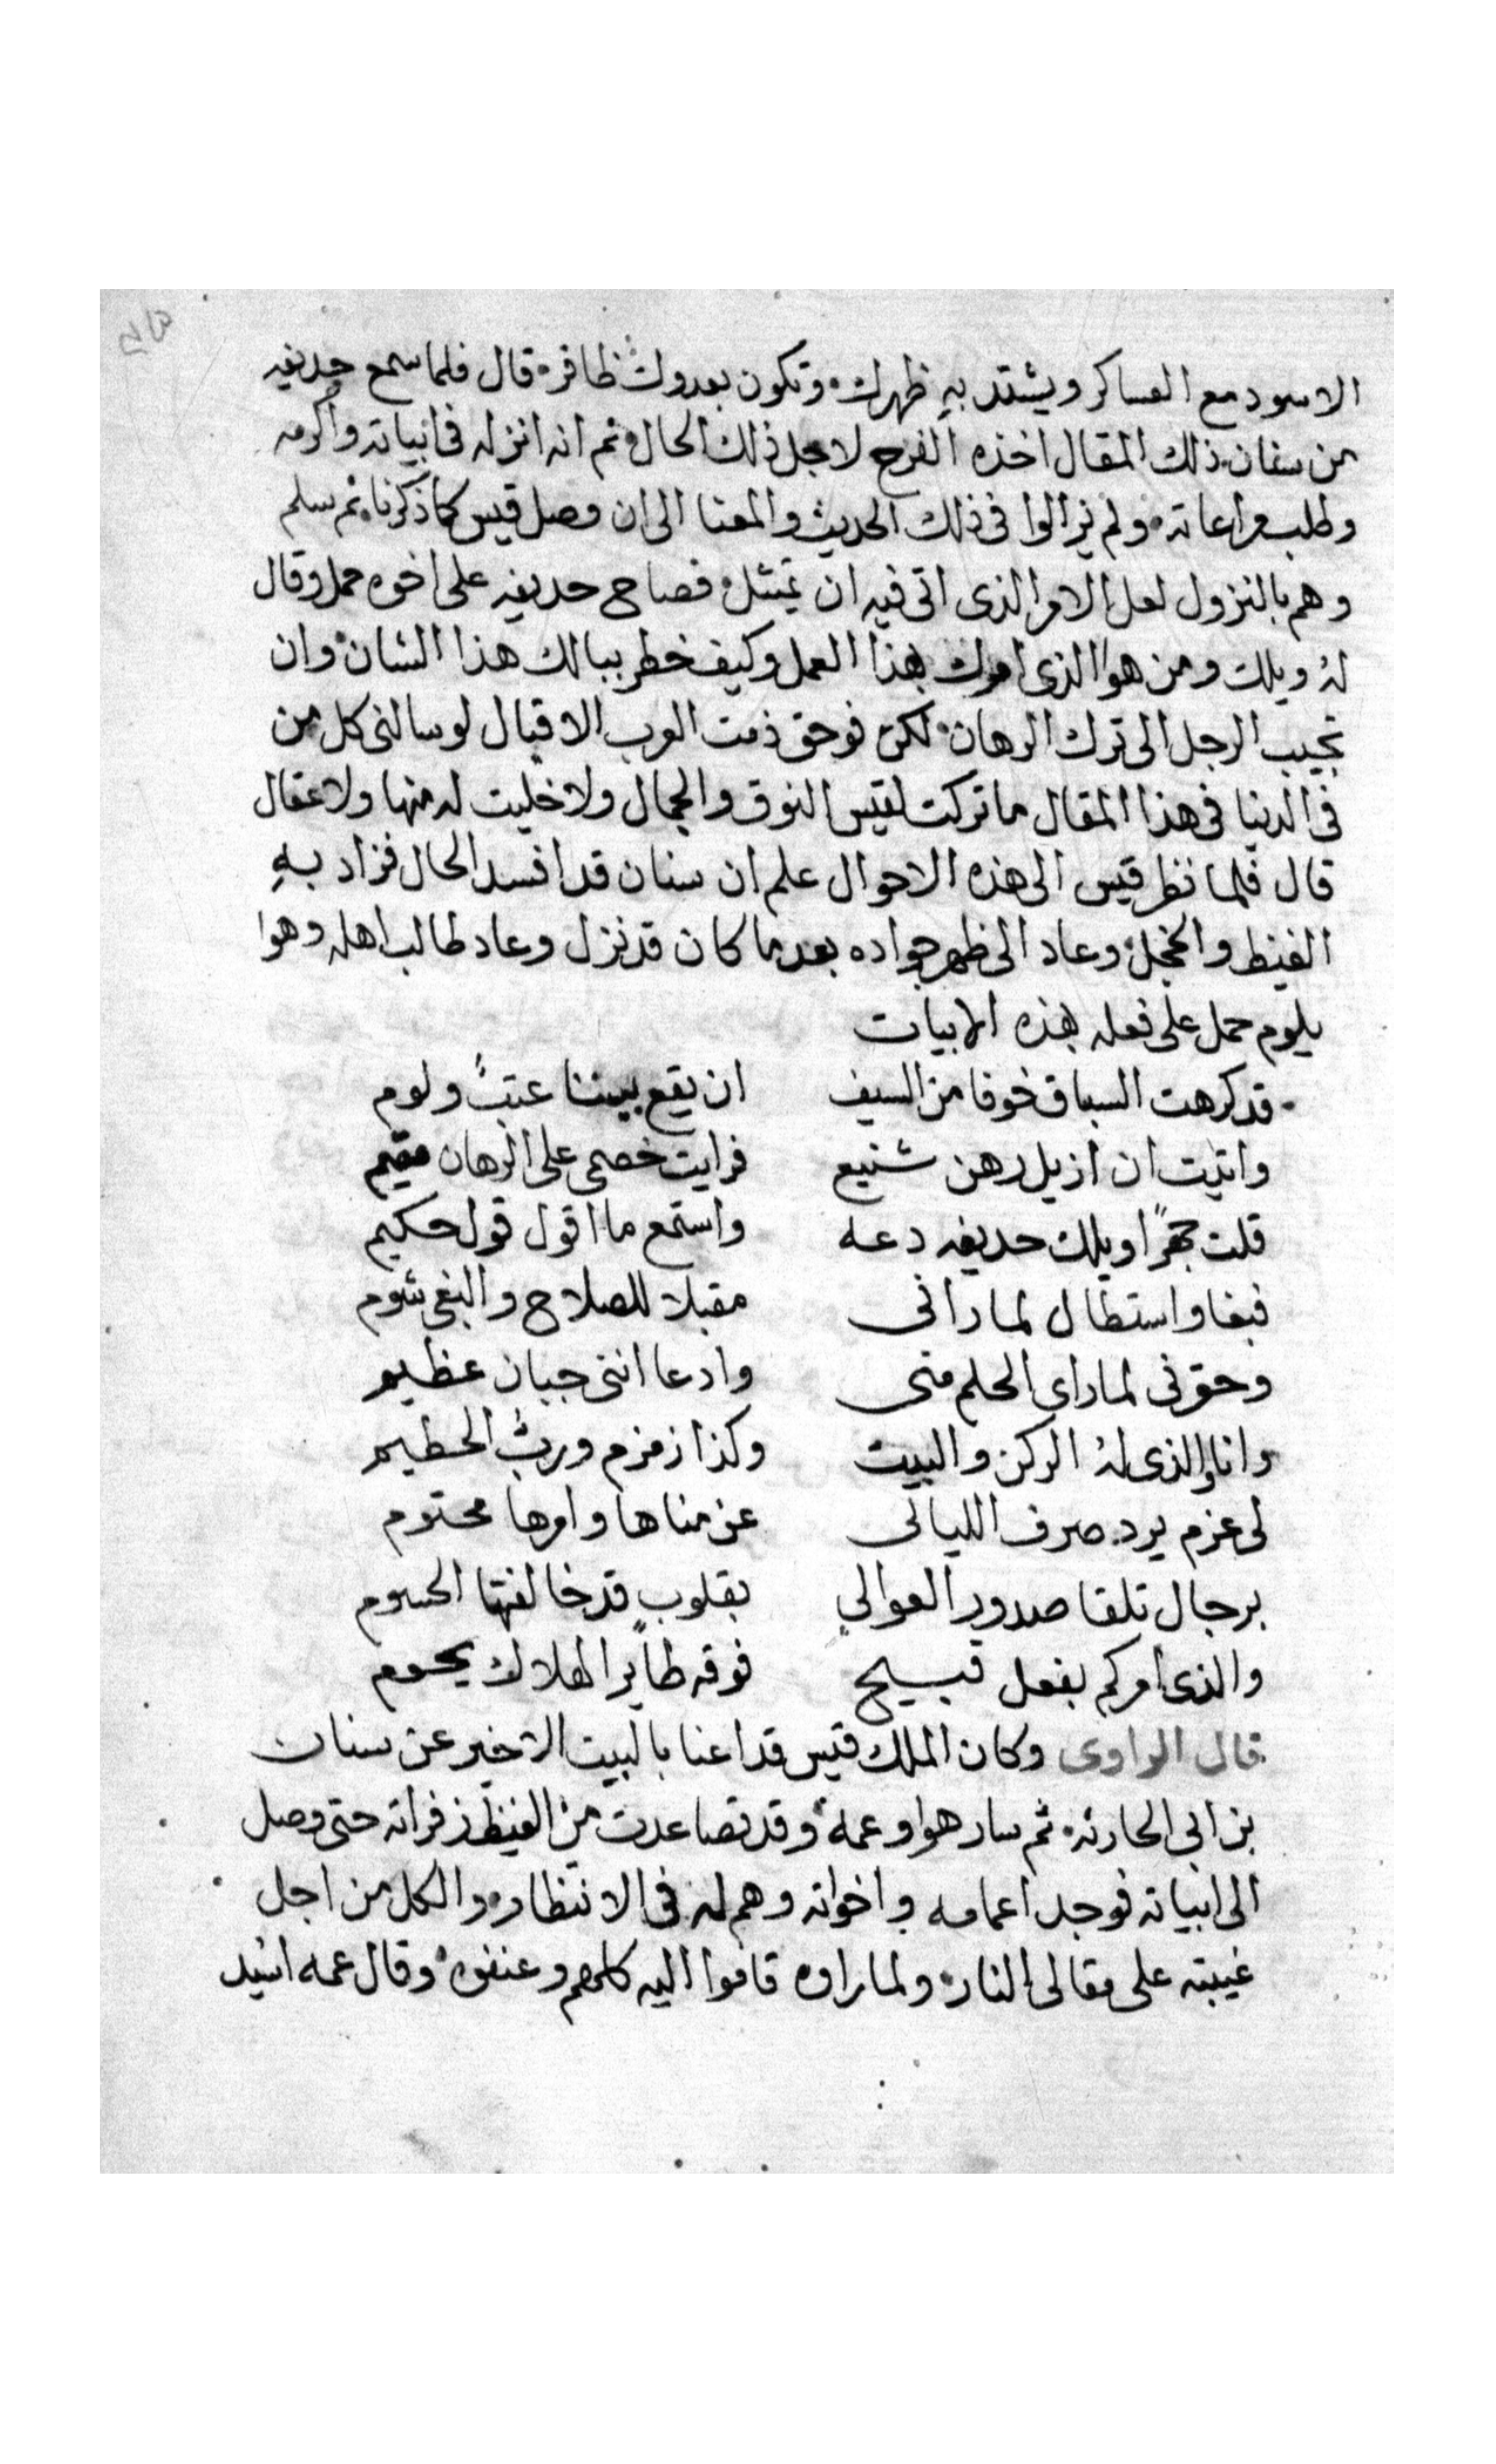 الاسود مع العساكر ويشتد بهِ ظهرك وتكون بعدوك ظافر قال فلما سمع حديفه
من سنان ذلك المقال اخذه الفرح لاجل ذلك الحال ثم انه انزله فى ابياته واكرمه
وطلب مراعاته ولم يزالوا فى ذلك الحديث والمعنا الى ان وصل قيس كما ذكرنا ثم سلم
وهم بالنزول لعل الامر الذى اتى فيه ان يتمثل فصاح حديفه على اخوه حمل وقال
لهُ ويلك ومن هوا الذى امرك بهذا العمل وكيف خطر ببالك هذا الشان وان
تجيب الرجل الى ترك الرهان لكن فوحق ذمت العرب الاقيال لو سالنى كل من
فى الدنيا فى هذا المقال ما تركت لقيس النوق والجمال ولا خليت له منها ولا عقال
قال فلما نظر قيس الى هذه الاحوال علم ان سنان قد افسد الحال فزاد بهِ
الغيظ والخجل وعاد الى ظهر جواده بعد ما كان قد نزل وعاد طالب اهله وهوا
يلوم حمل على فعله بهذه الابيات
قد كرهت السباق خوفا من السيف ان يقع بيننا عتبً ولوم
واتيت ان ازيل رهن شنيع فرايت خصمى على الرهان مقيم
قلت جهرًا ويلك حديفه دعه واستمع ما اقول قول حكيم
فبغا واستطال لما رانى مقبلا للصلاح والبغى شوم
وحقرنى لما راى الحلم منى وادعا اننى جبان عظيم
وانا والذى لهُ الركن والبيت وكذا زمزم وربُ الحطيم
لى عزم يرد صرف الليالى عن مناها وامرها محتوم
برجال تلقا صدور العوالي بقلوبٍ قد خالفتها الجسوم
والذى امركم بفعل قبيح فوقه طايرُ الهلاك يحوم
قال الراوى وكان الملك قيس قد اعنا بالبيت الاخير عن سنان
بن ابى الحارثه ثم سار هوا وعمه وقد تصاعدت من الغيظ زفراته حتى وصل
الى ابياته فوجد اعمامه واخواته وهم له فى الانتظار والكل من اجل
غيبته على مقالى النار ولما راوه قاموا اليه كلهم وعنفوه وقال عمه اسيد